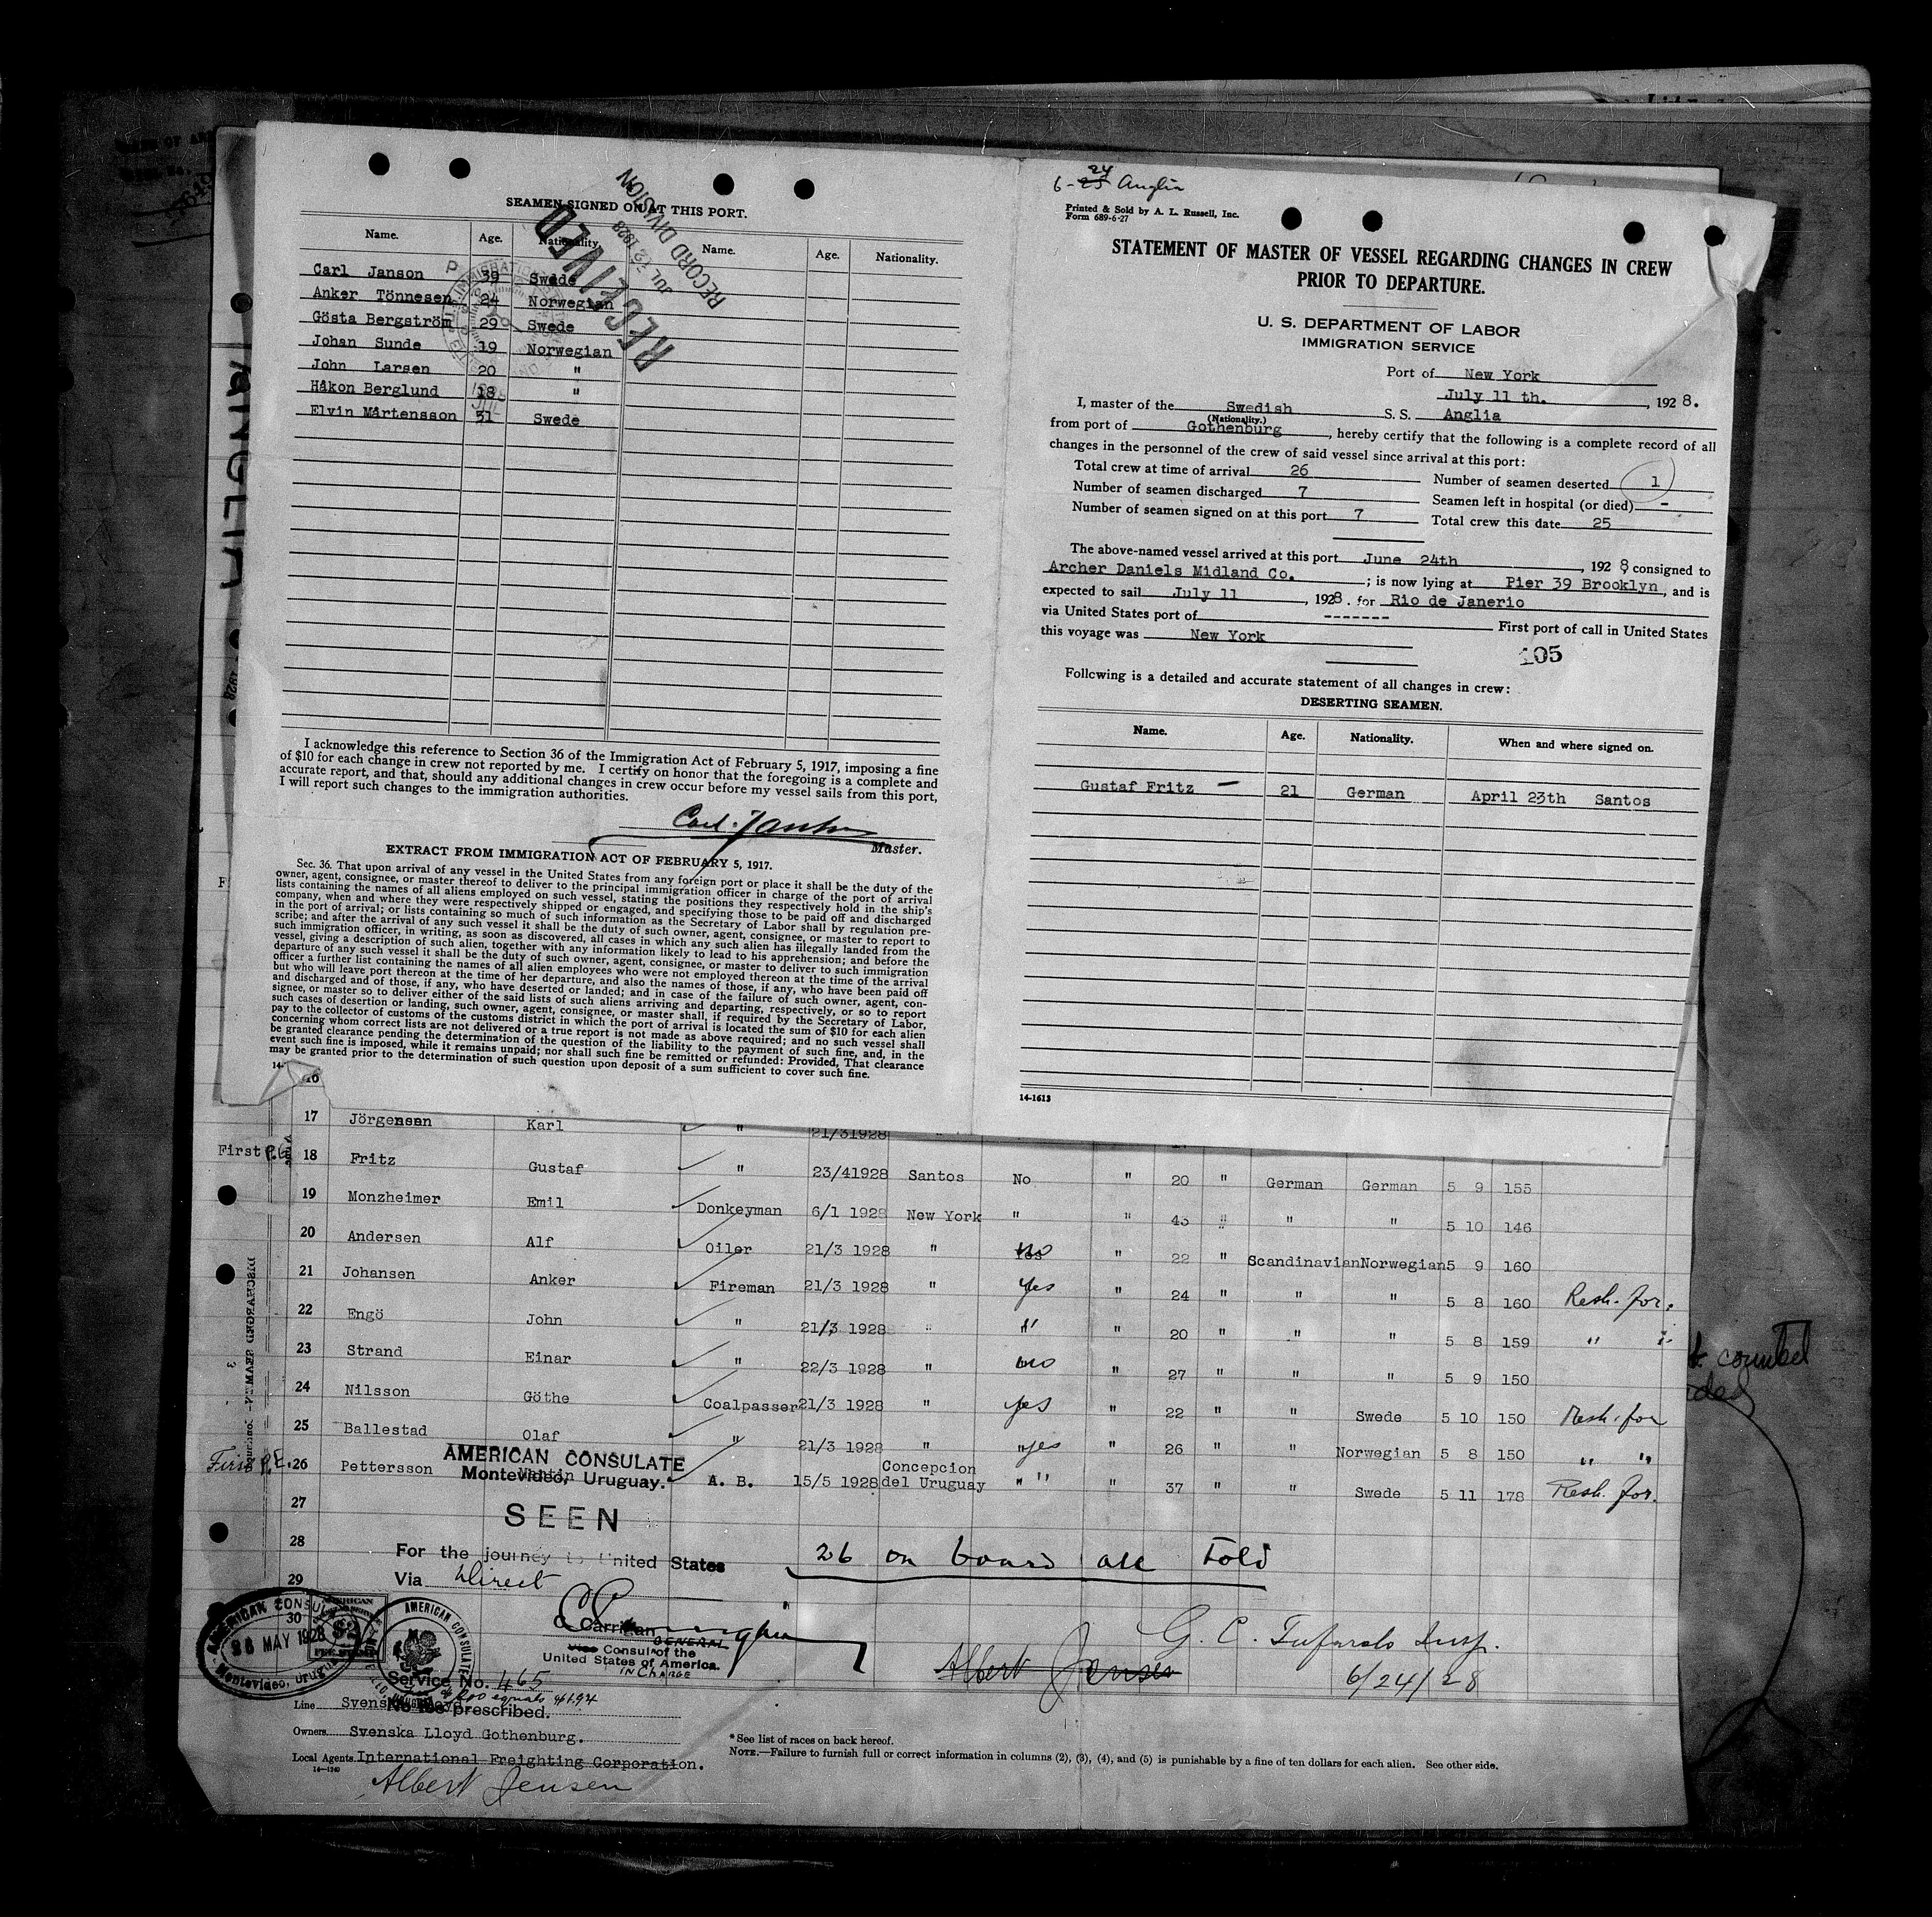 SEAMEN SIGNED ON AT THIS PORT.
Name. Age. Nationality. Name. Age. Nationality.
Carl Janson 39 Swede
Anker Tönnesen 24 Norwegian
Gösta Bergström 29 Swede
Johan Sunde 19 Norwegian
John Larsen 20 "
Håkon Berglund 18 "
Elvin Mårtensson 51 Swede
RECEIVED
JUL 12 1928
RECORD DIVISION
I acknowledge this reference to Section 36 of the Immigration Act of February 5, 1917, imposing a fine
of $10 for each change in crew not reported by me. I certify on honor that the foregoing is a complete and
accurate report, and that, should any additional changes in crew occur before my vessel sails from this port,
I will report such changes to the immigration authorities.
Master.
EXTRACT FROM IMMIGRATION ACT OF FEBRUARY 5, 1917.
Sec. 36. That upon arrival of any vessel in the United States from any foreign port or place it shall be the duty of the
owner, agent, consignee, or master thereof to deliver to the principal immigration officer in charge of the port of arrival
lists containing the names of all aliens employed on such vessel, stating the positions they respectively hold in the ship's
company, when and where they were respectively shipped or engaged, and specifying those to be paid off and discharged
in the port of arrival; or lists containing so much of such information as the Secretary of Labor shall by regulation pre-
scribe; and after the arrival of any such vessel it shall be the duty of such owner, agent, consignee, or master to report to
such immigration officer, in writing, as soon as discovered, all cases in which any such alien has illegally landed from the
vessel, giving a description of such alien, together with any information likely to lead to his apprehension; and before the
departure of any such vessel it shall be the duty of such owner, agent, consignee, or master to deliver to such immigration
officer a further list containing the names of all alien employees who were not employed thereon at the time of the arrival
but who will leave port thereon at the time of her departure, and also the names of those, if any, who have been paid off
and discharged and of those, if any, who have deserted or landed; and in case of the failure of such owner, agent, con-
signee, or master so to deliver either of the said lists of such aliens arriving and departing, respectively, or so to report
such cases of desertion or landing, such owner, agent, consignee, or master shall, if required by the Secretary of Labor,
pay to the collector of customs of the customs district in which the port of arrival is located the sum of $10 for each alien
concerning whom correct lists are not delivered or a true report is not made as above required; and no such vessel shall
be granted clearance pending the determination of the question of the liability to the payment of such fine, and, in the
event such fine is imposed, while it remains unpaid; nor shall such fine be remitted or refunded: Provided, That clearance
may be granted prior to the determination of such question upon deposit of a sum sufficient to cover such fine.
24
6-25 Anglia
Printed & Sold by A. L. Russell, Inc.
Form 689-6-27
STATEMENT OF MASTER OF VESSEL REGARDING CHANGES IN CREW
PRIOR TO DEPARTURE.
U. S. DEPARTMENT OF LABOR
IMMIGRATION SERVICE
Port of New York
July 11 th. , 1928.
I, master of the Swedish S. S. Anglia
(Nationality.)
from port of Gothenburg , hereby certify that the following is a complete record of all
changes in the personnel of the crew of said vessel since arrival at this port:
Total crew at time of arrival 26 Number of seamen deserted 1
Number of seamen discharged 7 Seamen left in hospital (or died) -
Number of seamen signed on at this port 7 Total crew this date 25
The above-named vessel arrived at this port June 24th , 1928, consigned to
Archer Daniels Midland Co. ; is now lying at Pier 39 Brooklyn, and is
expected to sail July 11 , 1928. for Rio de Janerio
via United States port of ------- First port of call in United States
this voyage was New York
105
Following is a detailed and accurate statement of all changes in crew:
DESERTING SEAMEN.
Name. Age. Nationality. When and where signed on.
Gustaf Fritz — 21 German April 23th Santos
14-1613
16
17 Jörgensen Karl " 21/31928
First P.E. 18 Fritz Gustaf " 23/41928 Santos No " 20 " German German 5 9 155
19 Monzheimer Emil Donkeyman 6/1 1928 New York " " 43 " " " 5 10 146
20 Andersen Alf Oiler 21/3 1928 " No " 22 " Scandinavian Norwegian 5 9 160
21 Johansen Anker Fireman 21/3 1928 " Yes " 24 " " " 5 8 160 Resh. for.
22 Engö John " 21/3 1928 " " " 20 " " " 5 8 159 " "
23 Strand Einar " 22/3 1928 " No " 27 " " " 5 9 150
24 Nilsson Göthe Coalpasser 21/3 1928 " Yes " 22 " " Swede 5 10 150 Resh. for
25 Ballestad Olaf " 21/3 1928 " " yes " 26 " " Norwegian 5 8 150 " "
First P.E. 26 Pettersson Martin A. B. 15/5 1928 Concepcion del Uruguay " " " 37 " " Swede 5 11 178 Resh. for.
27
28
29
30
AMERICAN CONSULATE
Montevideo, Uruguay.
SEEN
For the journey to United States
Via Direct
26 on board all told
C. Carrigan
Vice Consul GENERAL of the
United States of America.
IN CHARGE
AMERICAN CONSULATE
MAY 1928
Montevideo, Uruguay
Service No. 465
No fee prescribed.
Albert Jensen
6/24/28
Line Svenska Lloyd
Owners Svenska Lloyd Gothenburg.
Local Agents International Freighting Corporation.
14-1240
Albert Jensen
*See list of races on back hereof.
NOTE.—Failure to furnish full or correct information in columns (2), (3), (4), and (5) is punishable by a fine of ten dollars for each alien. See other side.
ANGLIA
counted